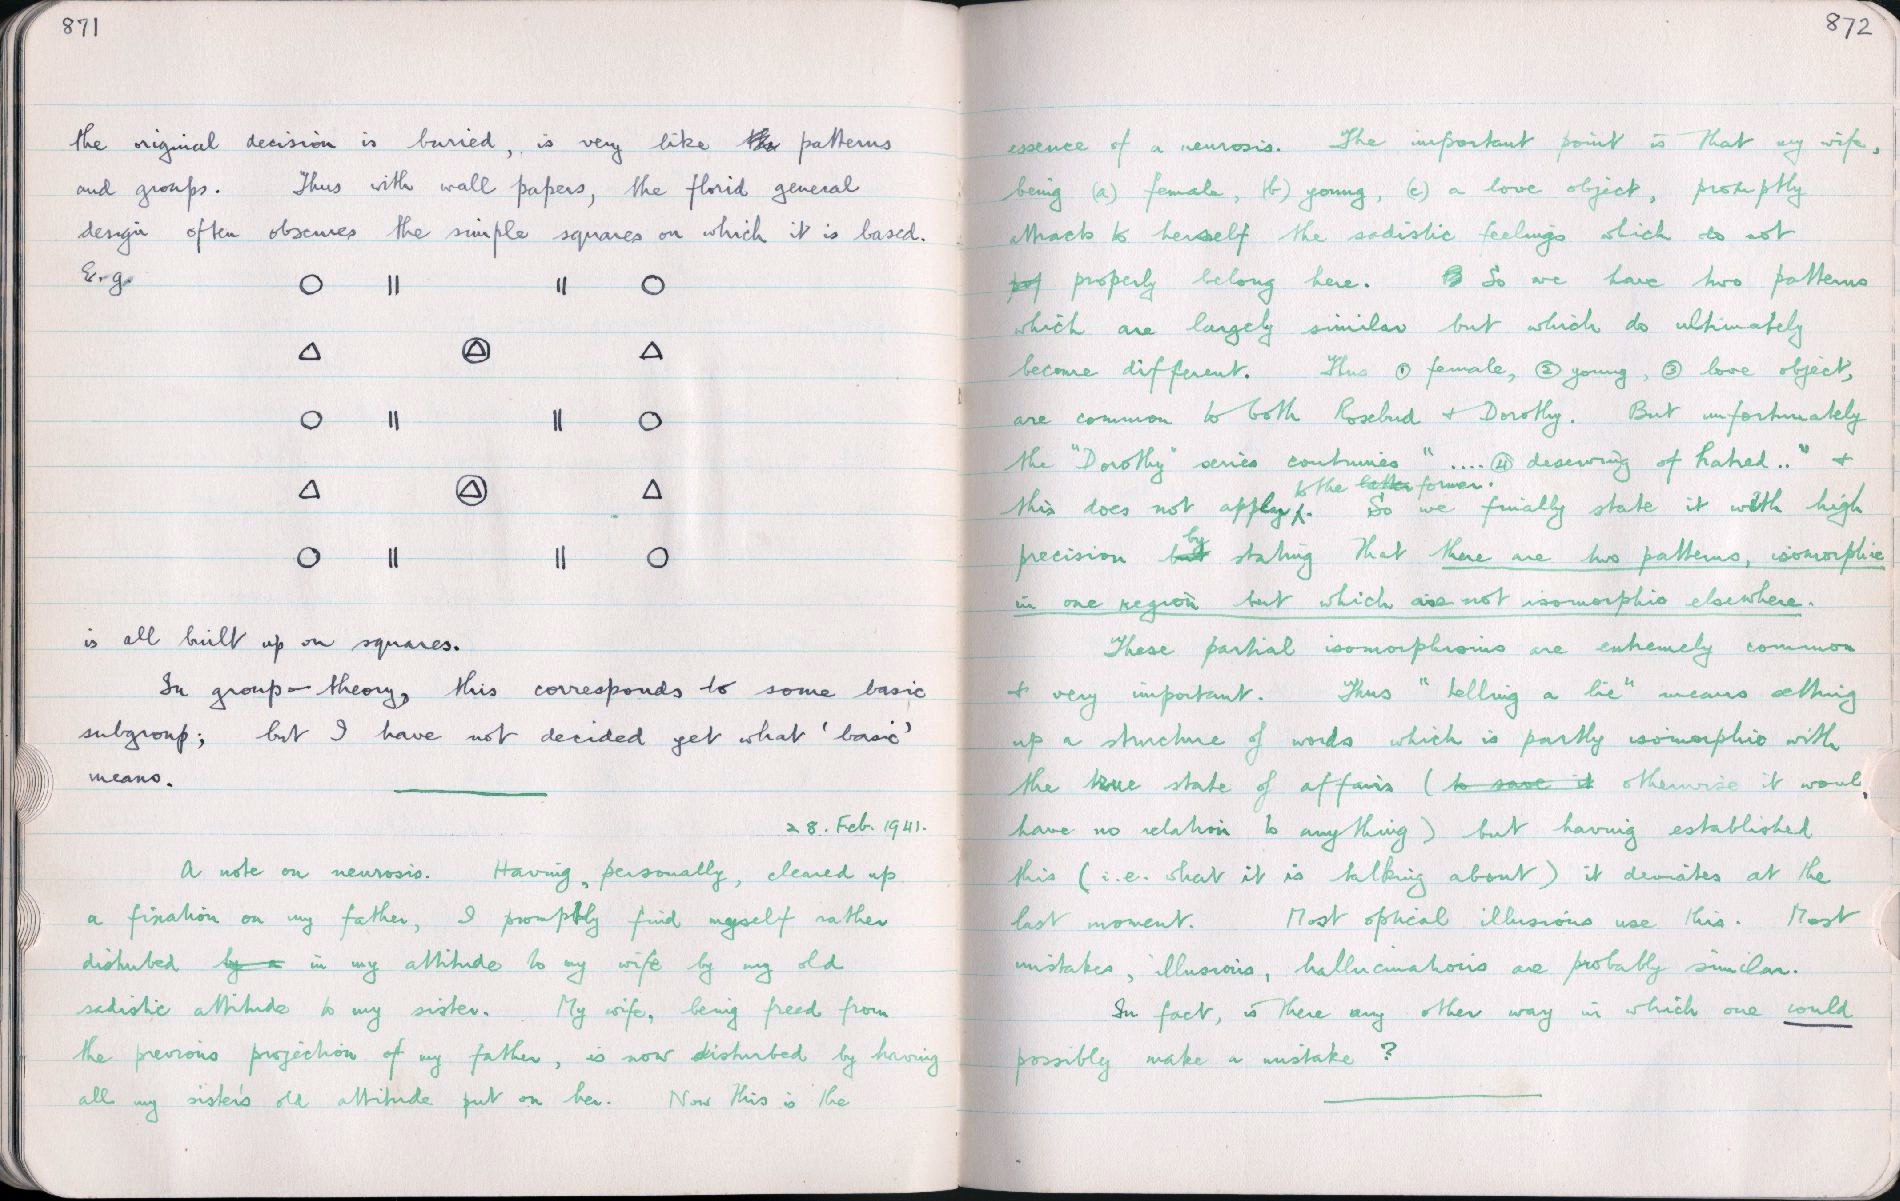 871
the original decision is buried, is very like the patterns
and groups. Thus with wall papers, the florid general
design often obscures the simple squares on which it is based.
E.g.
is all built up on squares.
In group-theory, this corresponds to some basic
subgroup; but I have not decided yet what 'basic'
means.
28. Feb. 1941.
A note on neurosis. Having, personally, cleared up
a fixation on my father, I promptly find myself rather
disturbed by a in my attitude to my wife by my old
sadistic attitude to my sister. My wife, being freed from
the previous projection of my father, is now disturbed by having
all my sister's old attitude put on her. Now this is the
872
essence of a neurosis. The important point is that my wife,
being (a) female, (b) young, (c) a love object, promptly
attracts to herself the sadistic feelings which do not
properly belong here. So we have two patterns
which are largely similar but which do ultimately
become different. Thus ① female, ② young, ③ love object,
are common to both Rosebud + Dorothy. But unfortunately
the "Dorothy" series continues ".... ④ deserving of hatred.." +
to the latter former.
this does not apply. So we finally state it with high
precision but by stating that there are two patterns, isomorphic
in one region but which are not isomorphic elsewhere.
These partial isomorphisms are extremely common
+ very important. Thus "telling a lie" means setting
up a structure of words which is partly isomorphic with
the true state of affairs (to save it otherwise it woul
have no relation to anything) but having established
this (i.e. what it is talking about) it deviates at the
last moment. Most optical illusions use this. Most
mistakes, illusions, hallucinations are probably similar.
In fact, is there any other way in which one could
possibly make a mistake?